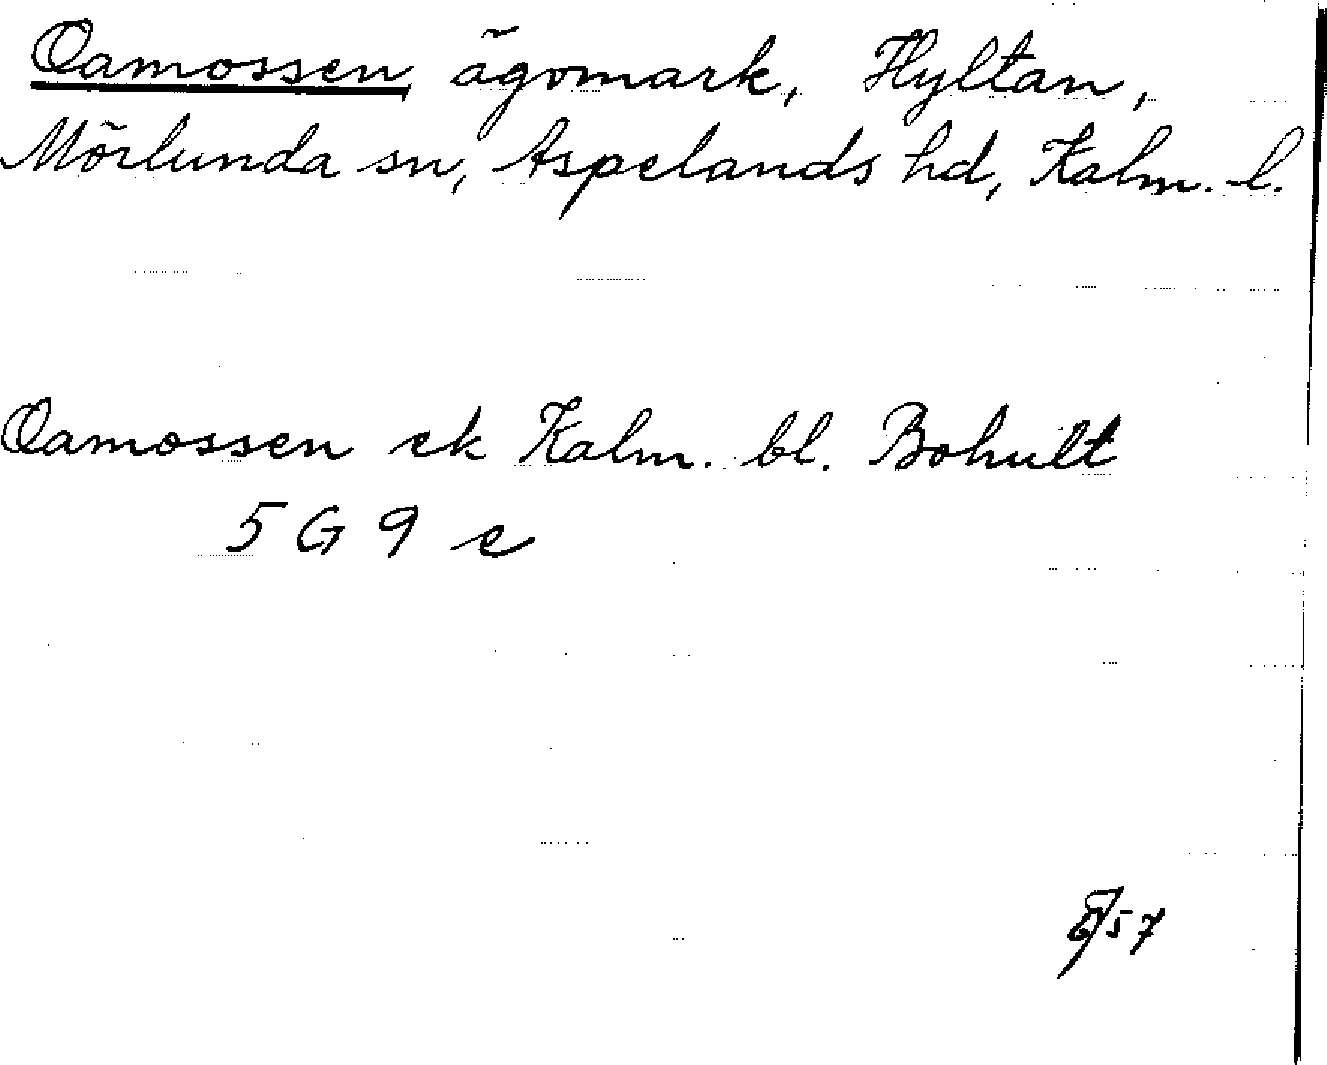 Oamossen ägomark, Hyltan,
Mörlunda sn, Aspelands hd, Kalm. l.
Oamossen ek Kalm. bl. Bohult
5 G 9 e
57